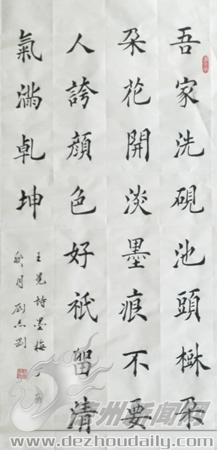 吾家洗硯池頭樹朶
朶花開淡墨痕不要
人誇顏色好祇留清
氣滿乾坤
王冕詩墨梅
月劉志剛
州新闻网
www.dezhoudaily.com